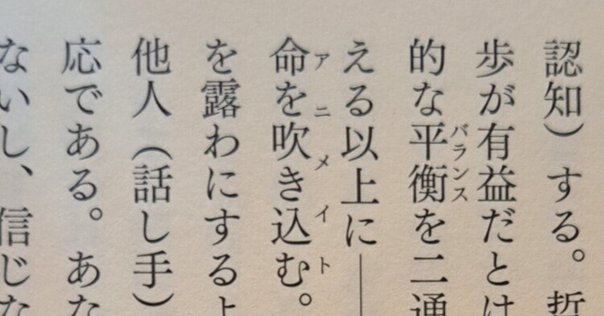 認知）する。哲
歩が有益だとは
的な平衡を二通
バランス
える以上に――
命を吹き込む。
アニメイト
を露わにするよ
他人（話し手）
応である。あな
ないし、信じな